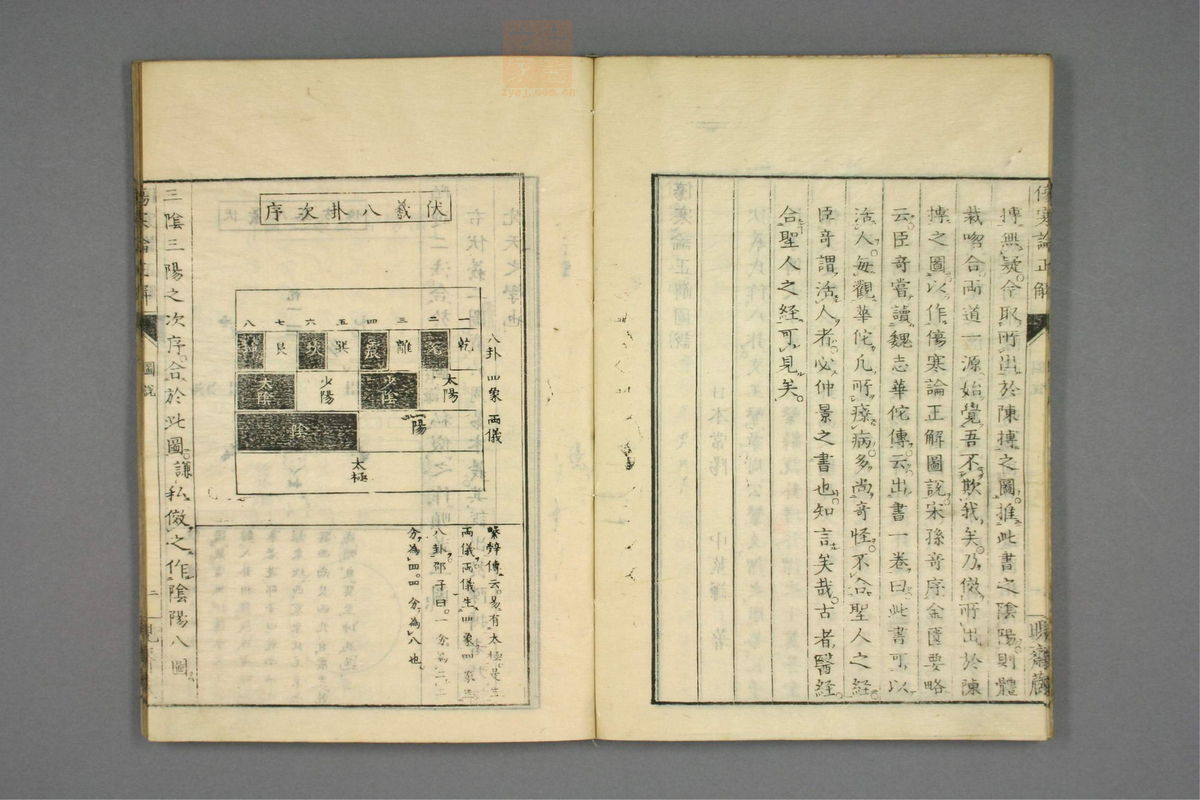 傷寒論正解
圖說
摶無疑。今取所出於陳摶之圖。推此書之陰陽。則體
裁吻合。両道一源。始覺吾不欺我矣。乃倣所出於陳
摶之圖。以作傷寒論正解圖說。宋孫奇序金匱要略
云。臣奇嘗讀魏志華佗傳。云出書一卷曰。此書可以
活人。每觀華佗凡所療病。多尚奇怪。不合聖人之経。
臣奇謂活人者。必仲景之書也。知言矣哉。古者醫経
合聖人之経可見矣。
伏羲八卦次序
八卦
四象
両儀
一 二 三 四 五 六 七 八
乾 兌 離 震 巽 坎 艮 坤
太陽 少陰 少陽 太陰
陽 陰
太極
繫辭傳云。易有太極。是生
両儀。両儀生四象。四象生
八卦。邵子曰。一分為二。二
分為四。四分為八也。
三陰三陽之次序。合於此圖。謙私倣之。作陰陽八圖。
圖說
二